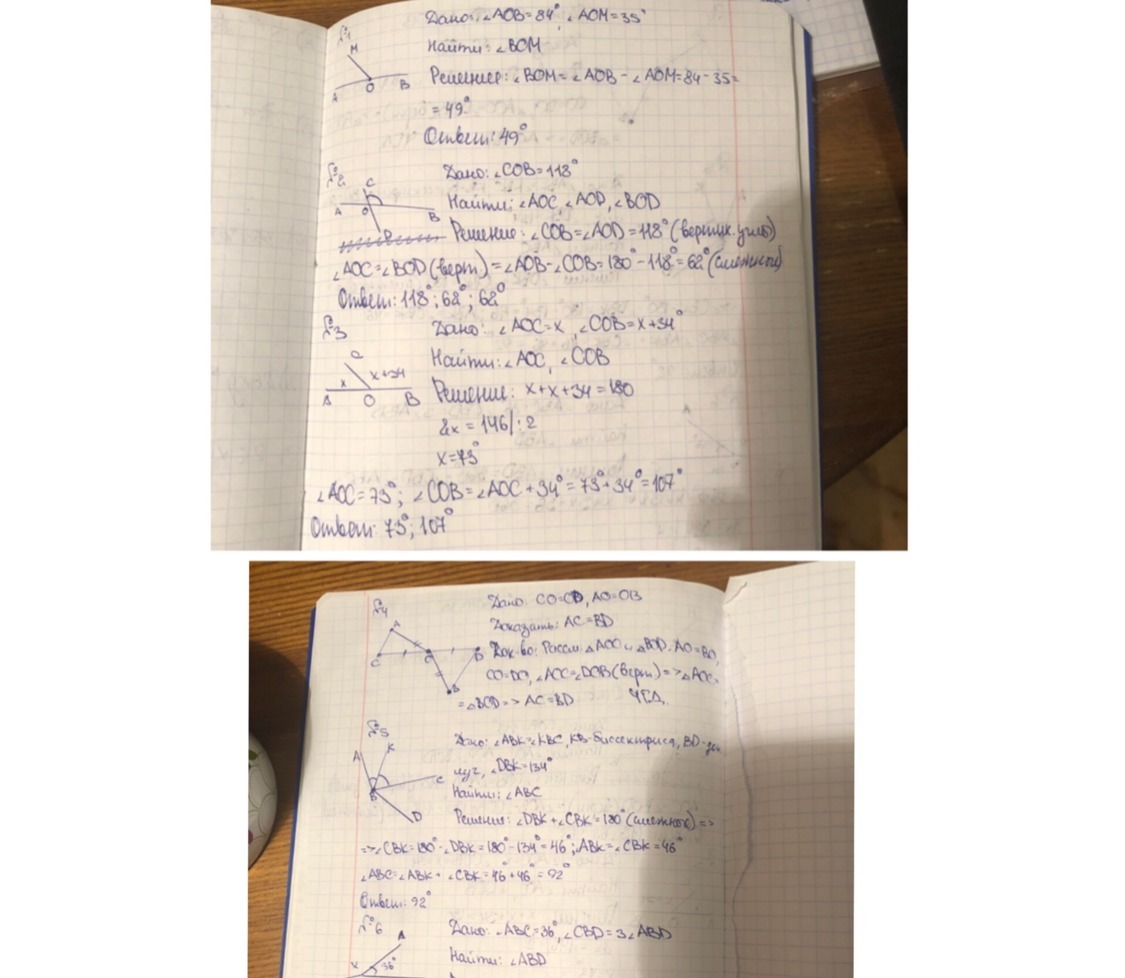 №1
Дано: ∠AOB=84°, ∠AOM=35°
Найти: ∠BOM
M
A O B
Решение: ∠BOM= ∠AOB - ∠AOM=84-35=
=49°
Ответ: 49°
№2
Дано: ∠COB=118°
C
Найти: ∠AOC, ∠AOD, ∠BOD
A O B
D
Решение: ∠COB=∠AOD=118° (вертик. углы)
∠AOC=∠BOD (верт) = ∠AOB-∠COB=180°-118°=62° (смежный)
Ответ: 118°; 62°; 62°
№3
Дано: ∠AOC=x, ∠COB=x+34°
Найти: ∠AOC, ∠COB
C
x x+34
A O B
Решение: x+x+34=180
2x=146|:2
x=73°
∠AOC=73°; ∠COB=∠AOC+34°=73°+34°=107°
Ответ: 73°; 107°
№4
Дано: CO=OD, AO=OB
Доказать: AC=BD
A
C O D
B
Док-во: Рассм. △AOC и △BOD. AO=BO,
CO=DO, ∠AOC=∠DOB (верт) => △AOC=
=△BOD => AC=BD ЧТД.
№5
Дано: ∠ABK=∠KBC, KB-биссектриса, BD-доп
A K
C
B
D
луч, ∠DBK=134°
Найти: ∠ABC
Решение: ∠DBK+∠CBK=180° (смежног) =>
=>∠CBK=180°-∠DBK=180°-134°=46°; ABK=∠CBK=46°
∠ABC=∠ABK+∠CBK=46°+46°=92°
Ответ: 92°
№6
Дано: ∠ABC=36°, ∠CBD=3∠ABD
A
Найти: ∠ABD
36°